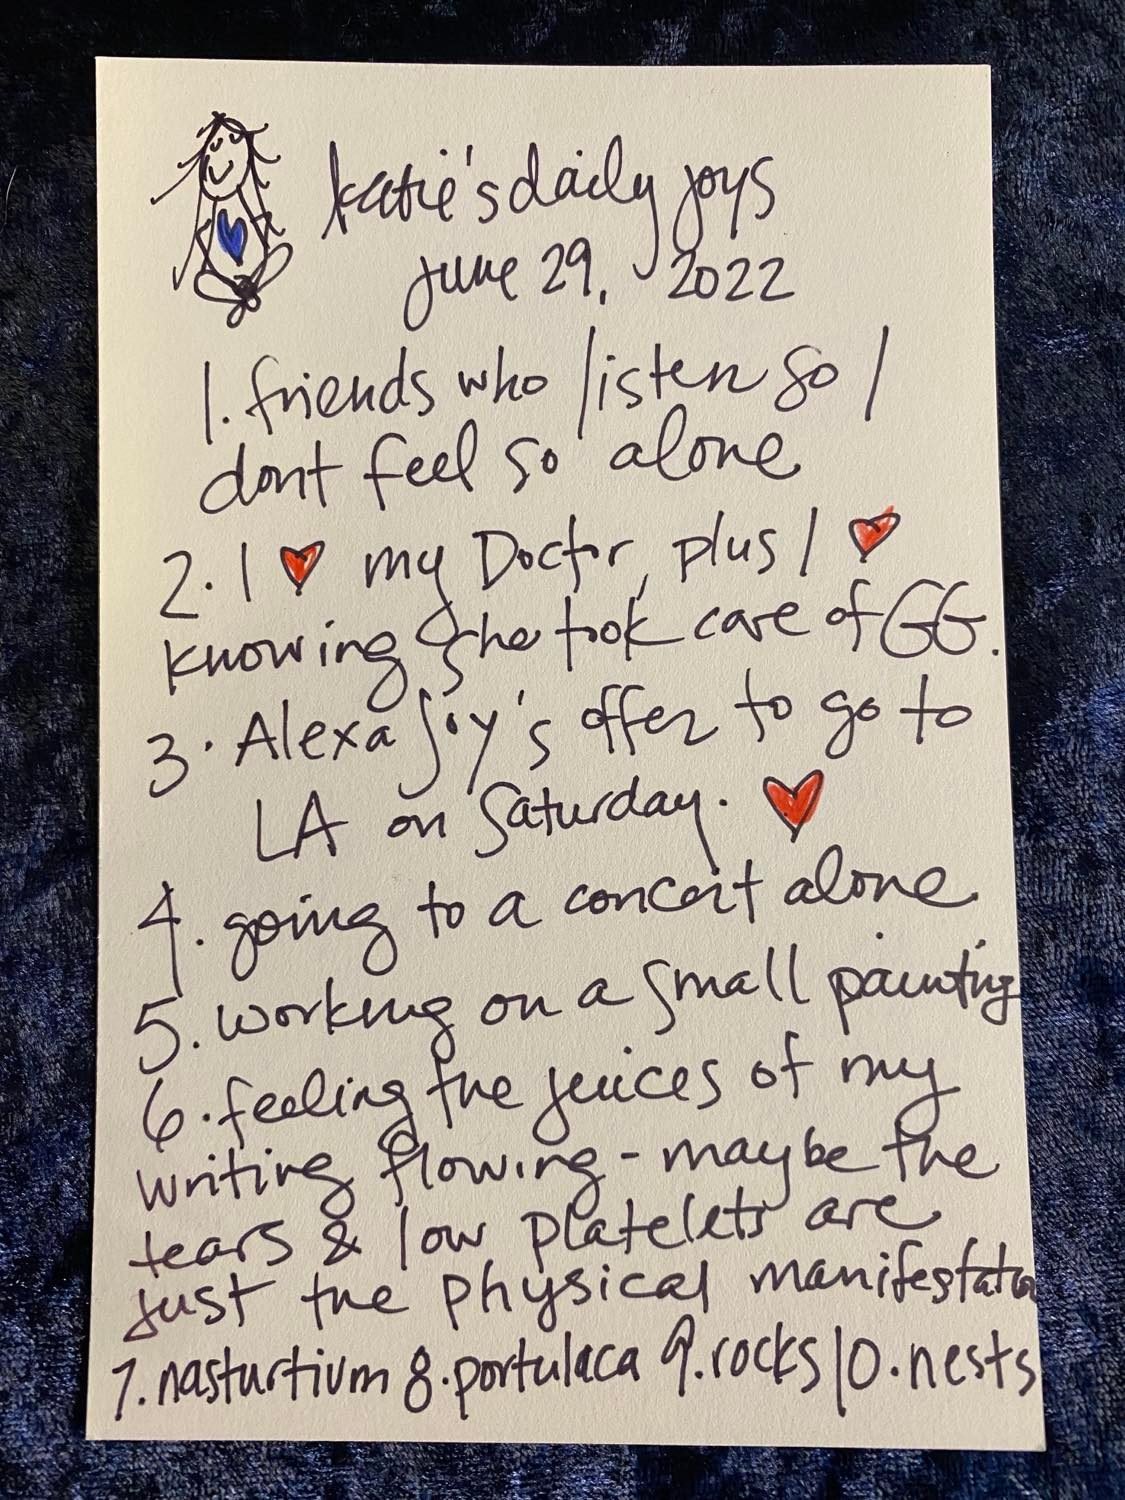 katie's daily joys
june 29, 2022
1. friends who listen so I
dont feel so alone
2. I ♥ my Doctor, plus I ♥
knowing she took care of GG.
3. Alexa Joy's offer to go to
LA on Saturday. ♥
4. going to a concert alone
5. working on a small painting
6. feeling the juices of my
writing flowing - maybe the
tears & low platelets are
just the physical manifestation
7. nasturtium 8. portulaca 9. rocks 10. nests